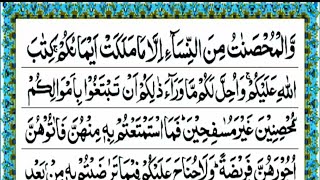 وَّالۡمُحۡصَنٰتُ مِنَ النِّسَآءِ اِلَّا مَا مَلَكَتۡ اَيۡمَانُكُمۡ ۚ كِتٰبَ
اللّٰهِ عَلَيۡكُمۡ ۚ وَاُحِلَّ لَكُمۡ مَّا وَرَآءَ ذٰ لِكُمۡ اَنۡ تَبۡتَغُوۡا بِاَمۡوَالِكُمۡ
مُّحۡصِنِيۡنَ غَيۡرَ مُسٰفِحِيۡنَ ؕ فَمَا اسۡتَمۡتَعۡتُمۡ بِهٖ مِنۡهُنَّ فَاٰتُوۡهُنَّ
اُجُوۡرَهُنَّ فَرِيۡضَةً ؕ وَلَا جُنَاحَ عَلَيۡكُمۡ فِيۡمَا تَرٰضَيۡتُمۡ بِهٖ مِنۡۢ بَعۡدِ